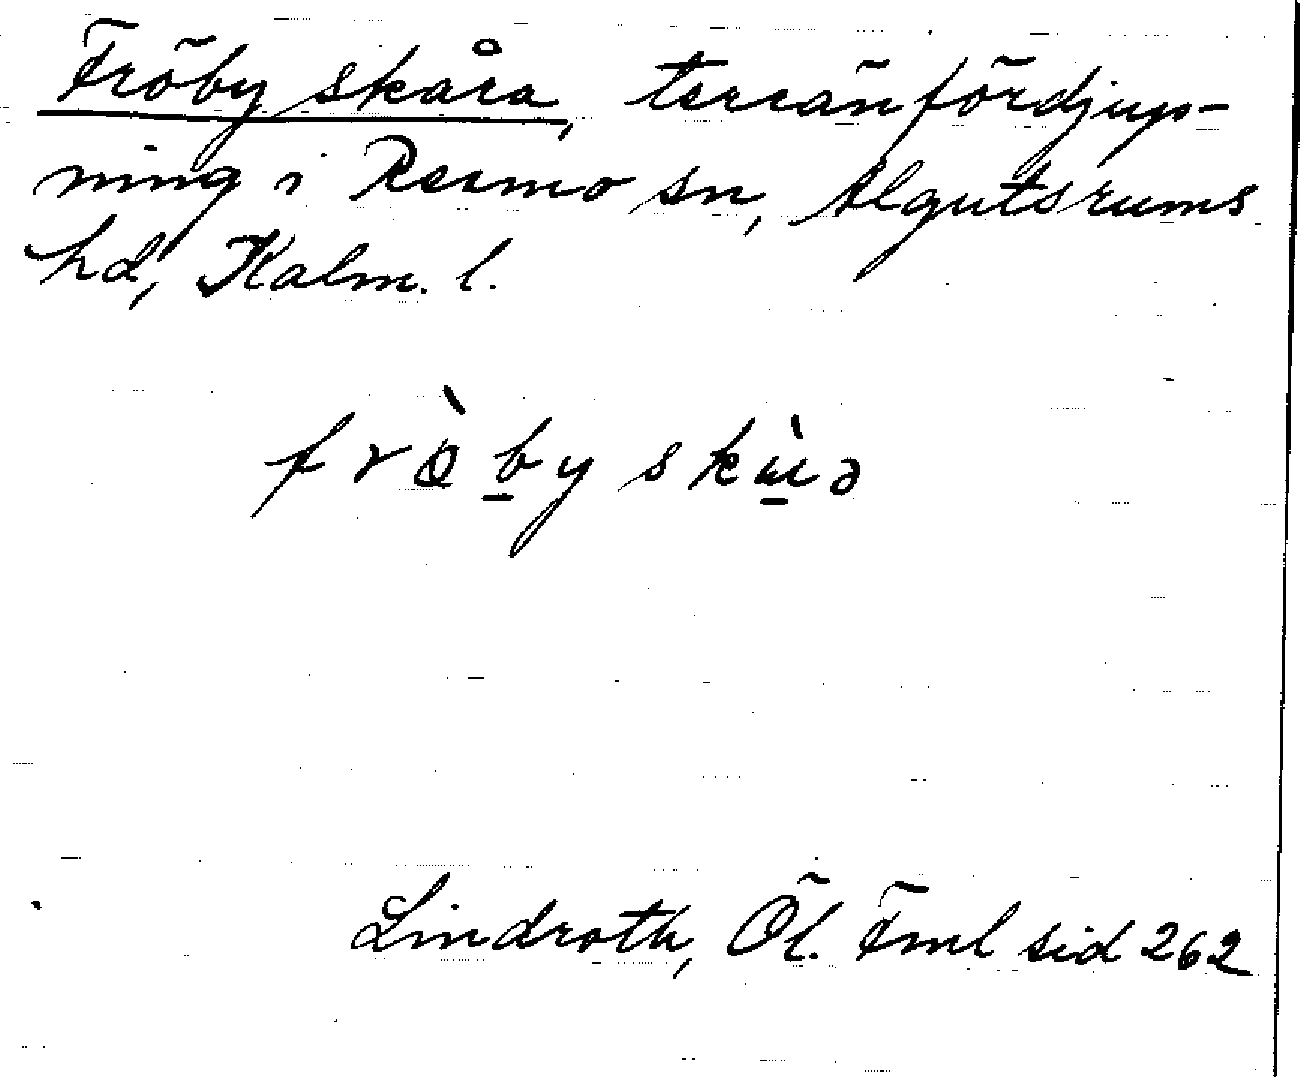 Fröby skåra, terränfördjup-
ning i Resmo sn, Algutsrums
hd, Kalm. l.
Lindroth, Öl. Fml sid 262